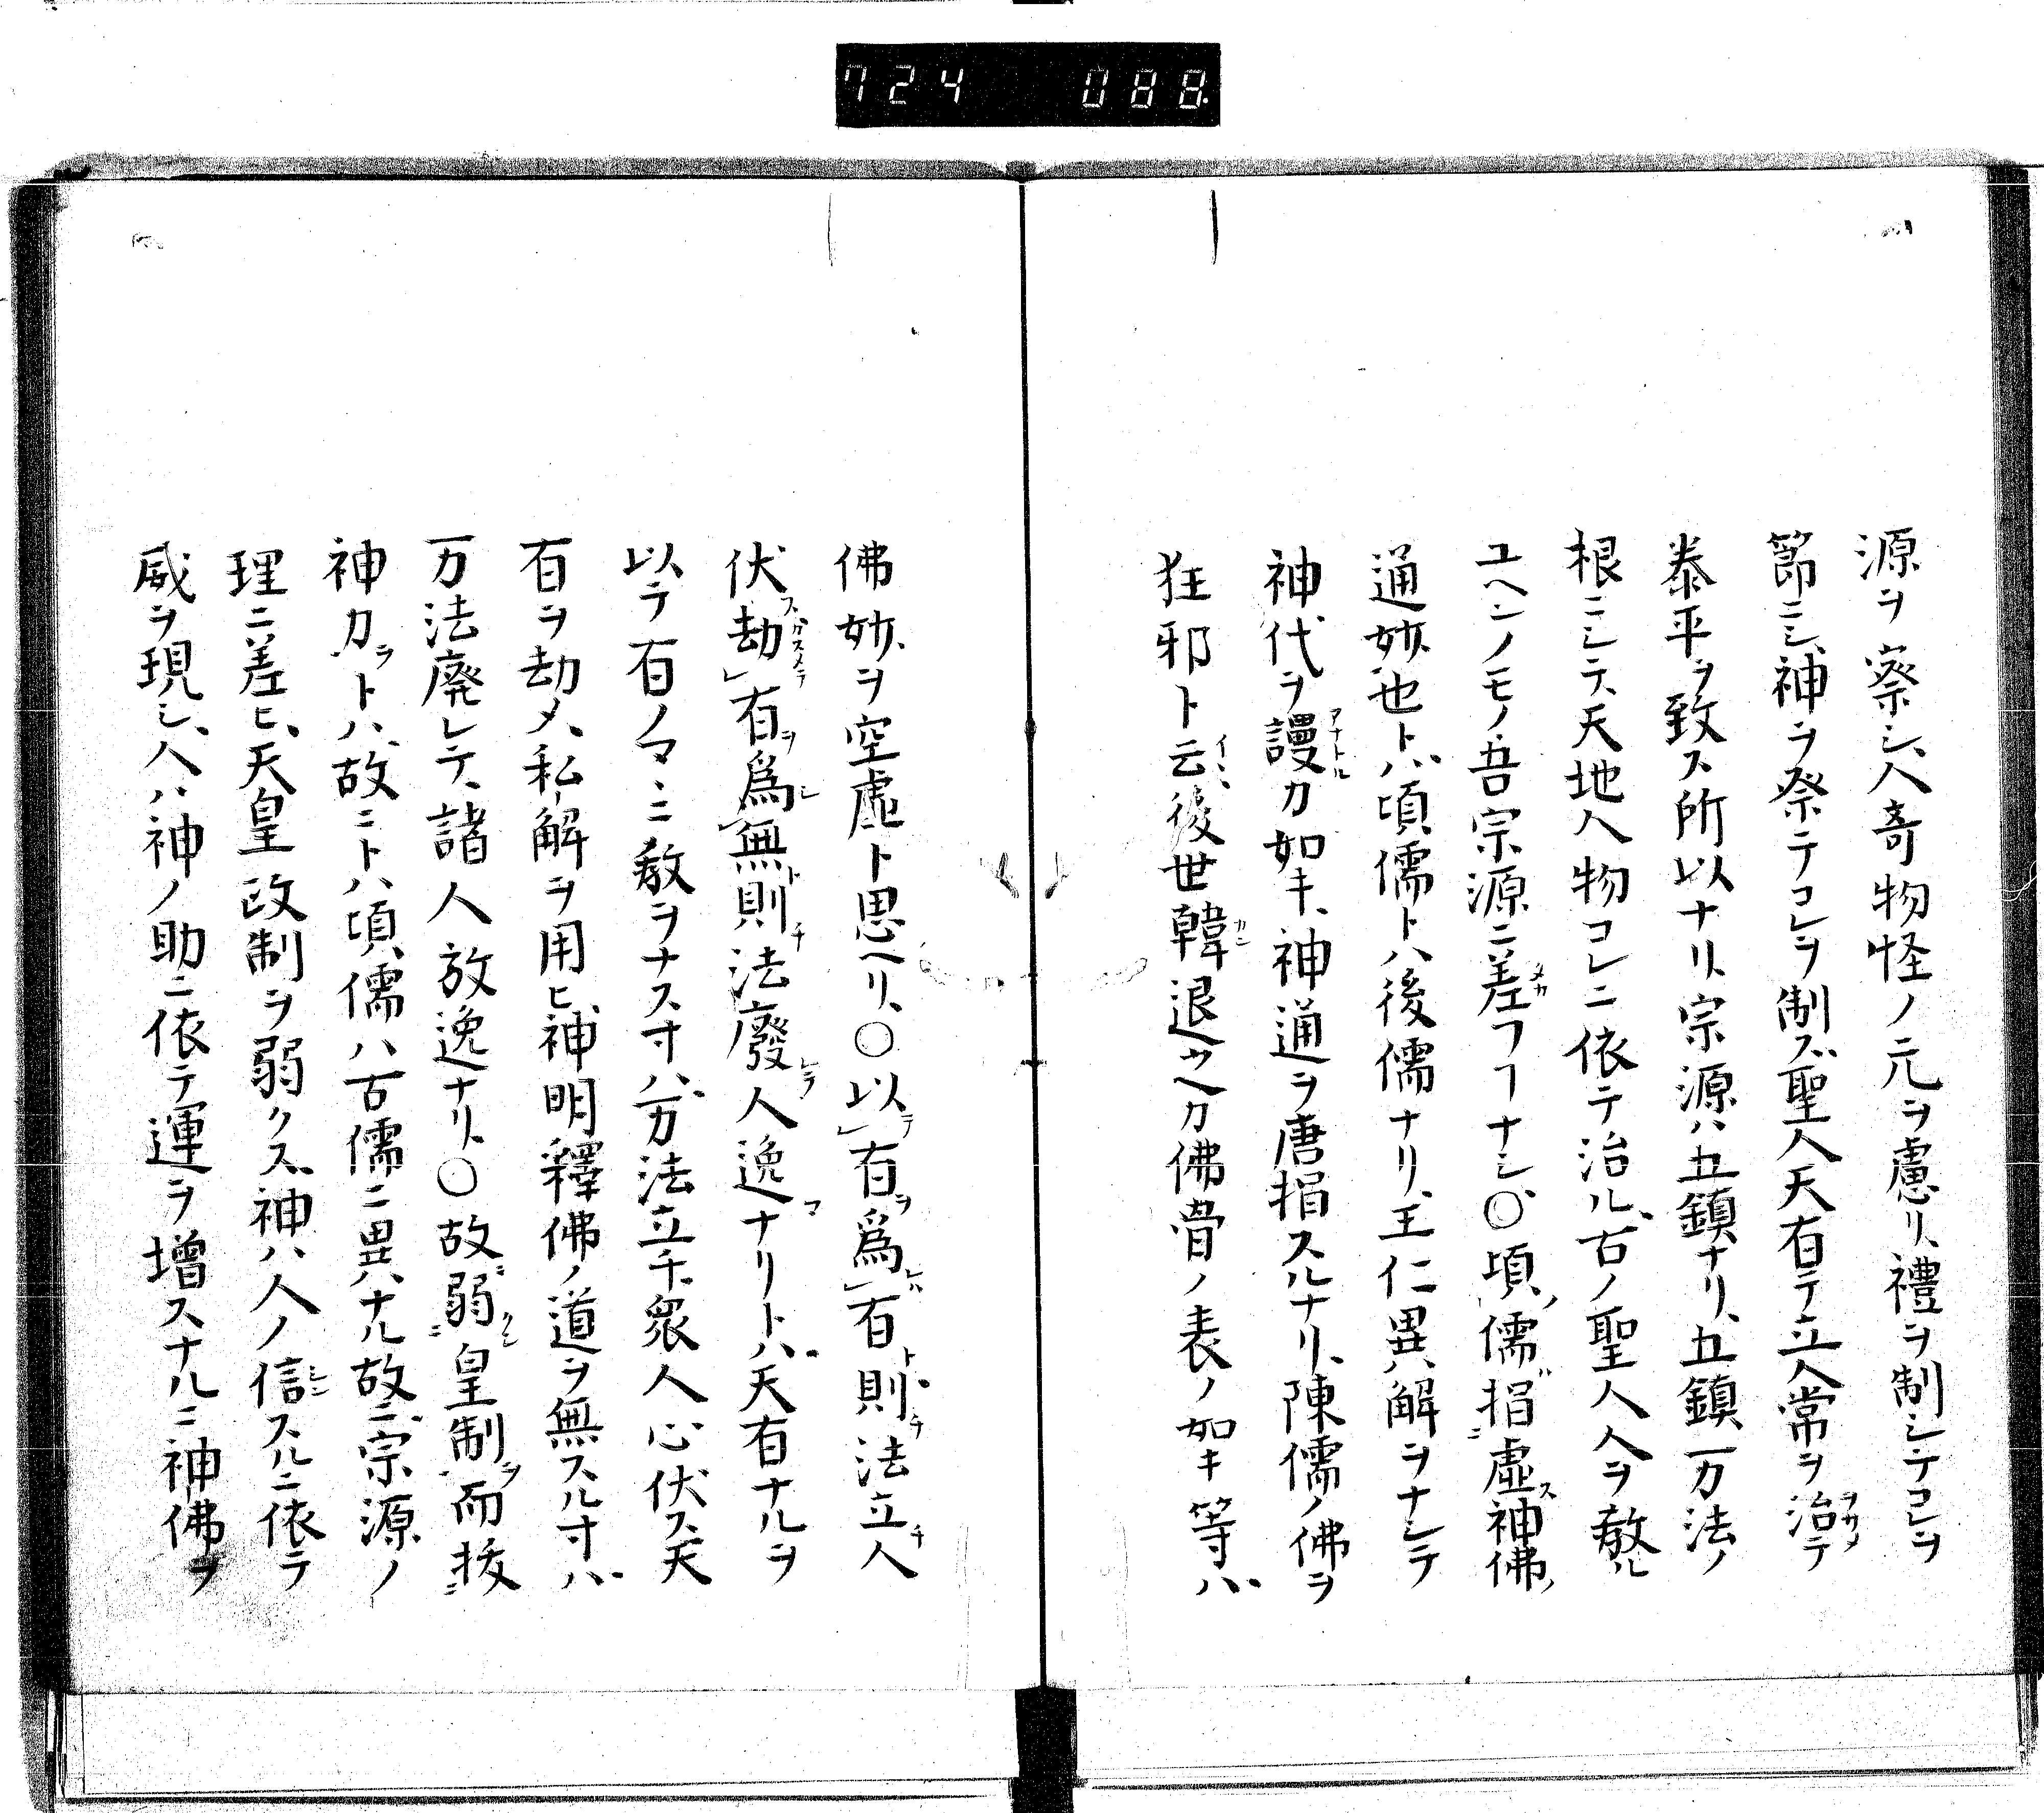 724 088
源ヲ察シ、人奇物怪ノ元ヲ慮リ、禮ヲ制シテコレヲ
節ニシ、神ヲ祭テコレヲ制ズ、聖人天有テ立人常ヲ治テ
泰平ヲ致ス所以ナリ、宗源ハ五鎮ナリ、五鎮一万法ノ
根ニシテ、天地人物コレニ依テ治ル、古ノ聖人今ヲ教ル
ユヘンノモノ、吾宗源ニ差フヿナシ、〇頃儒捐虚神佛
通妙也トハ、頃儒トハ後儒ナリ、王仁異解ヲナシテ
神代ヲ謾カ如キ、神通ヲ唐捐スルナリ、陳儒ノ佛ヲ
狂邪ト云、後世韓退之カ佛骨ノ表ノ如キ等ハ
佛妙ヲ空虚ト思ヘリ、〇以有爲有則法立人
伏劫有爲無則法廢人逸ナリトハ、天有ナルヲ
以テ有ノマヽニ教ヲナス寸ハ、万法立チ、衆人心伏ス、天
有ヲ劫メ、私解ヲ用ヒ、神明釋佛ノ道ヲ無スル寸ハ
万法廃レテ、諸人放逸ナリ、〇故弱皇制而抜
神力ラトハ、故ニトハ頃儒ハ古儒ニ異ナル故ニ、宗源ノ
理ニ差ヒ、天皇政制ヲ弱クス、神ハ人ノ信スルニ依テ
威ヲ現シ、人ハ神ノ助ニ依テ運ヲ増スナルニ神佛ヲ